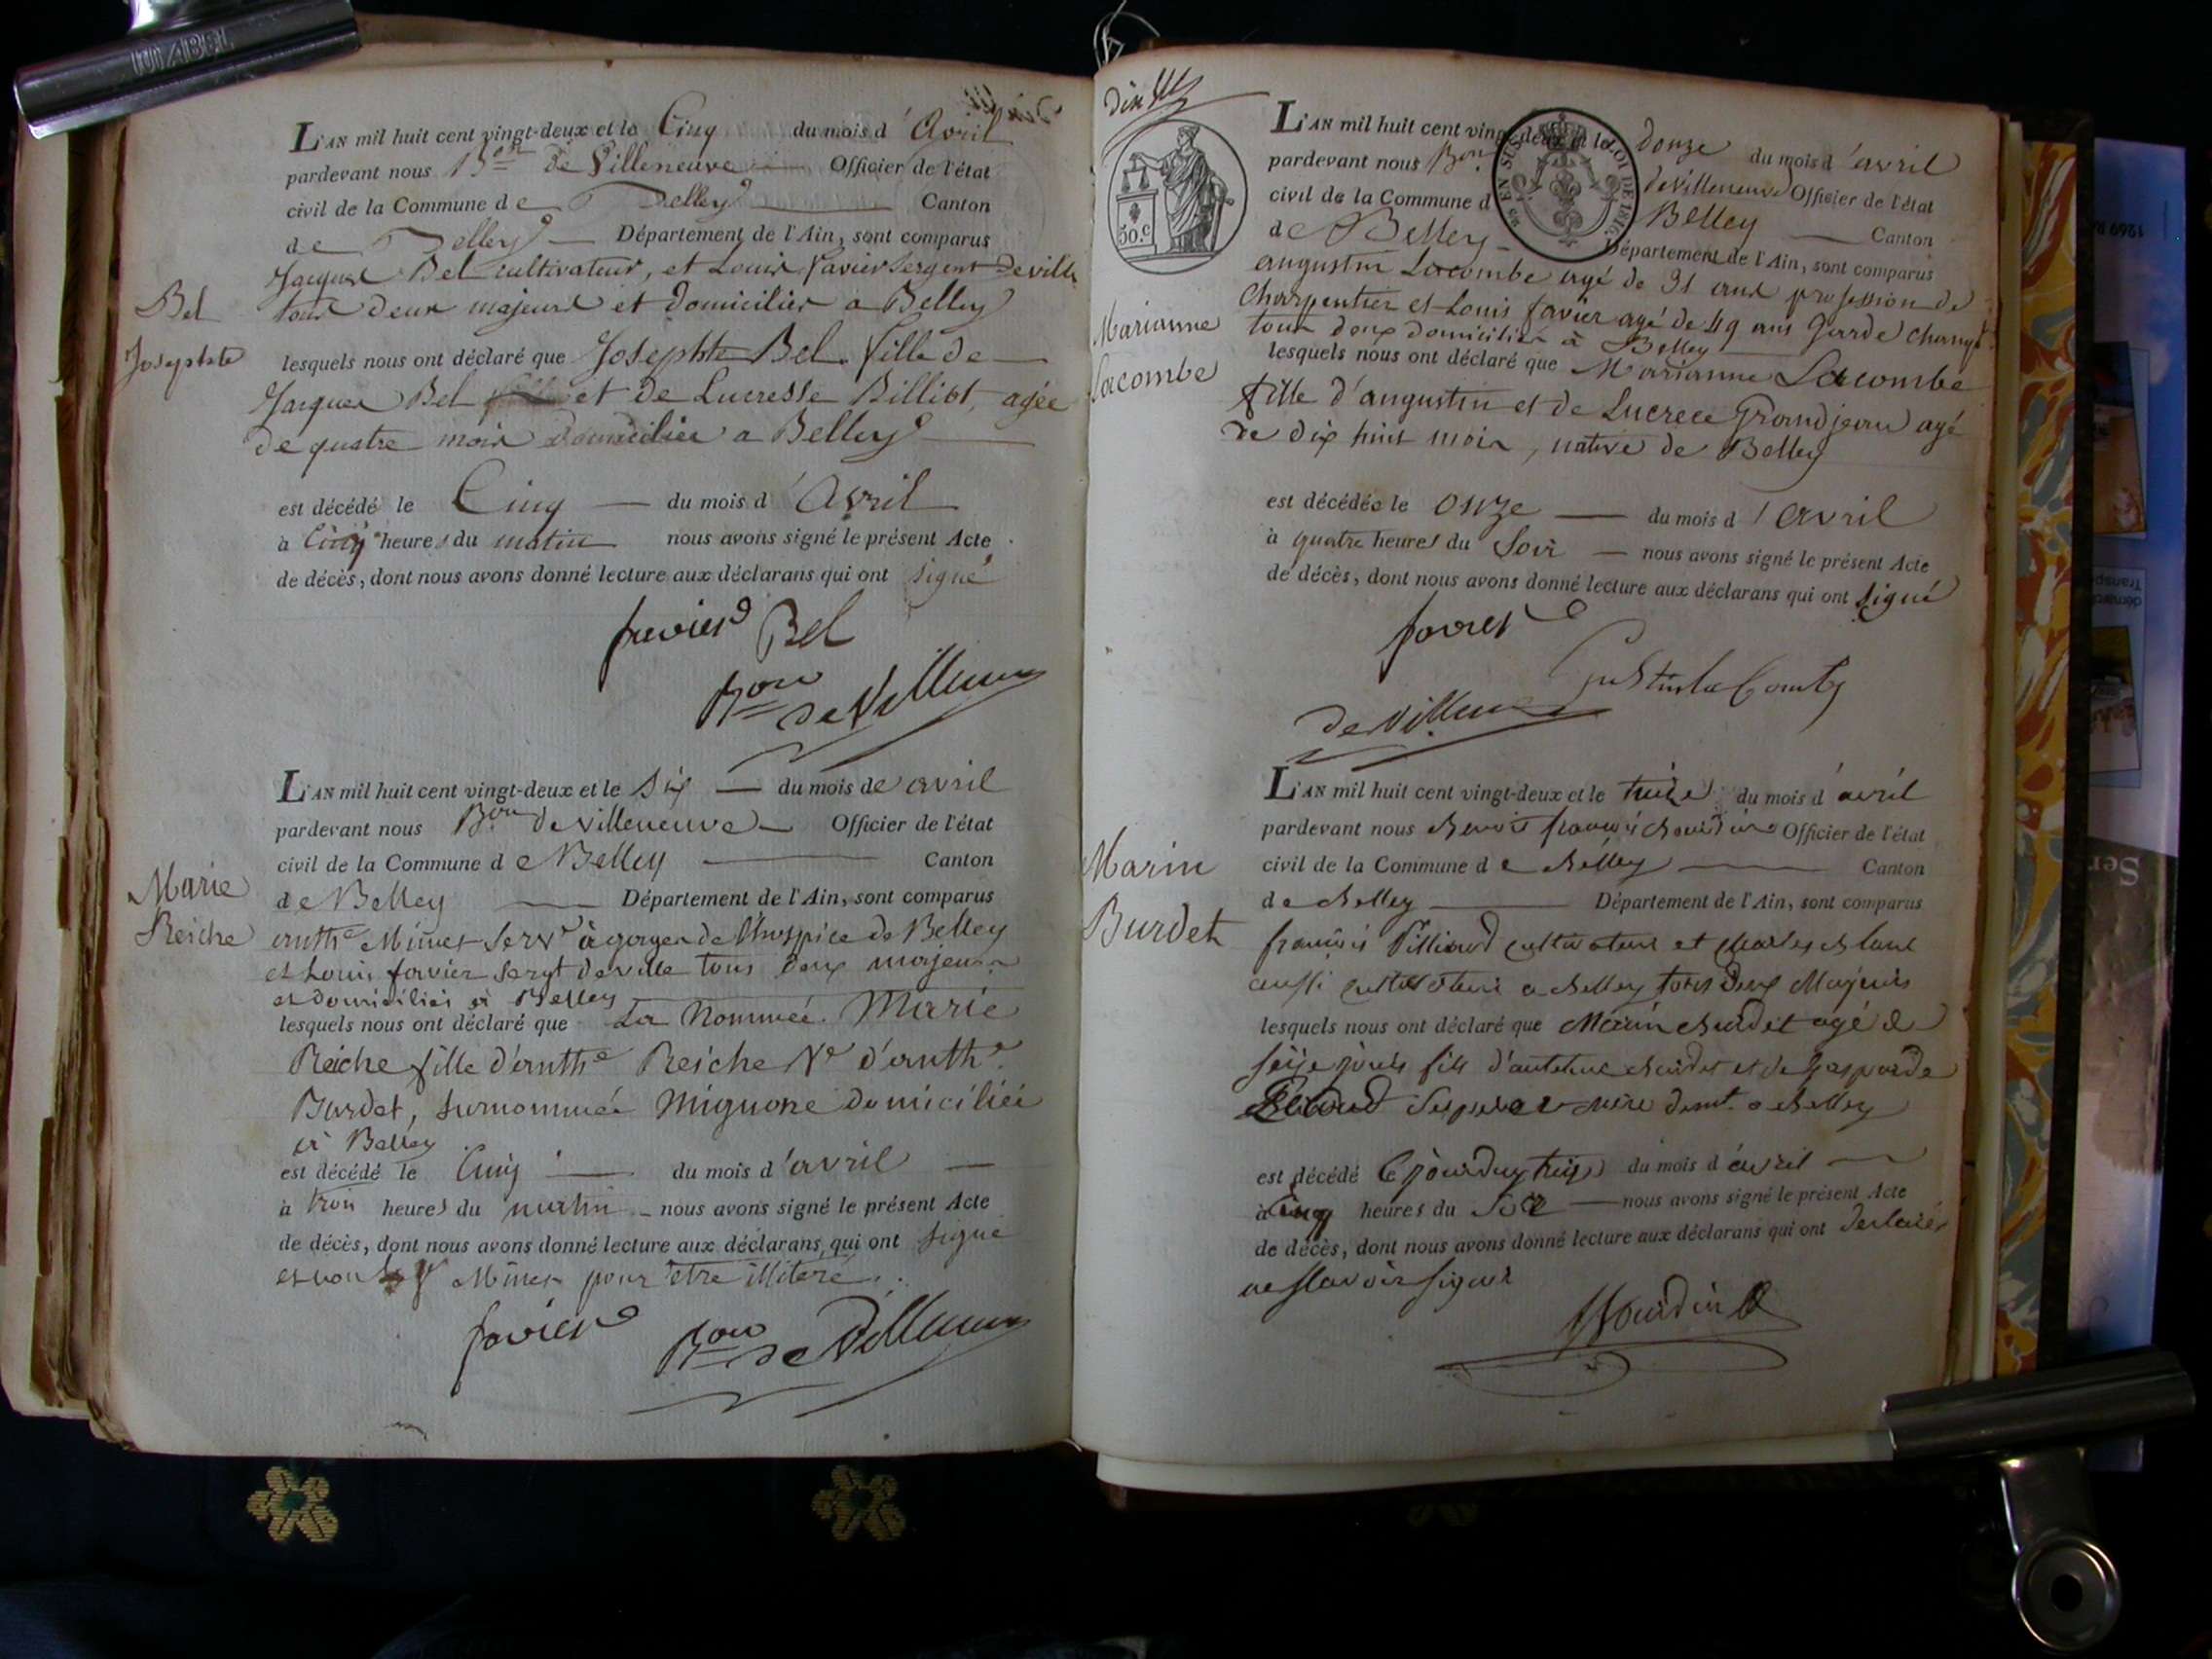 L'AN mil huit cent vingt-deux et le Cinq du mois d'Avril
pardevant nous Bon de Villeneuve Officier de l'état
civil de la Commune de Belley Canton
de Belley Département de l'Ain, sont comparus
Jacques Bel cultivateur, et Louis favier Sergent de ville
tous deux majeurs et domiciliés a Belley
Bel
Josephte
lesquels nous ont déclaré que Josephte Bel fille de
Jacques Bel et de Lucresse Billiot, agée
de quatre mois domiciliée a Belley
est décédé le Cinq du mois d'Avril
à Cinq heures du matin nous avons signé le présent Acte
de décès, dont nous avons donné lecture aux déclarans qui ont signé
favier Bel
Bon de Villeneuve
L'AN mil huit cent vingt-deux et le six du mois de avril
pardevant nous Bon de Villeneuve Officier de l'état
civil de la Commune de Belley Canton
Marie
Reiche
de Belley Département de l'Ain, sont comparus
anthe Minet serv à gages de l'hospice de Belley
et Louis favier sergt de ville tous deux majeurs
et domiciliés à Belley
lesquels nous ont déclaré que La Nommée Marie
Reiche fille d'anthe Reiche Ve d'anthe
Burdet, surnommée Mignone domiciliée
à Belley
est décédé le Cinq du mois d'avril
à trois heures du matin nous avons signé le présent Acte
de décès, dont nous avons donné lecture aux déclarans qui ont signé
et non Minet pour être illiteré
favier Bon de Villeneuve
dix
50.c
L'AN mil huit cent vingt-deux et le douze du mois d'avril
pardevant nous Bon de Villeneuve Officier de l'état
civil de la Commune d Belley Canton
de Belley Département de l'Ain, sont comparus
augustin Lacombe agé de 31 ans profession de
Charpentier et Louis favier agé de 49 ans Garde
tous deux domiciliés à Belley
Marianne
Lacombe
lesquels nous ont déclaré que Marianne Lacombe
fille d'augustin et de Lucrece Grandjean agé
de dix huit mois, native de Belley
est décédée le onze du mois d'avril
à quatre heures du Soir nous avons signé le présent Acte
de décès, dont nous avons donné lecture aux déclarans qui ont signé
favier
de Villeneuve
L'AN mil huit cent vingt-deux et le treize du mois d'avril
pardevant nous Officier de l'état
civil de la Commune de Belley Canton
Marin
Burdet
de Belley Département de l'Ain, sont comparus
françois Billioud cultivateur et Charles Blanc
aussi cultivateur a Belley tous deux Majeurs
lesquels nous ont déclaré que Marin Burdet agé de
seize jours fils d'antoine Burdet et de Gasparde
ses pere et mere demt. a Belley
est décédé le jourduy treize du mois d'avril
à cinq heures du Soir nous avons signé le présent Acte
de décès, dont nous avons donné lecture aux déclarans qui ont declaré
ne scavoir signer